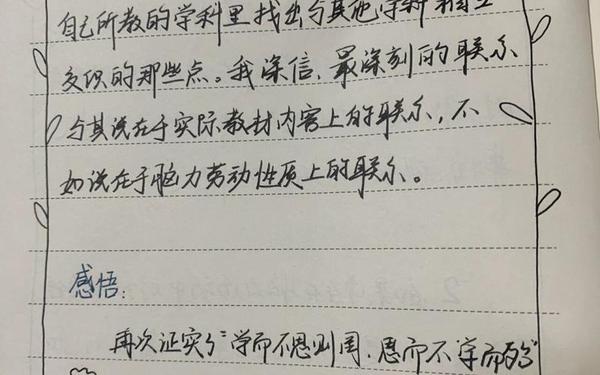 自己所教的学科里找出与其他学科相互
交织的那些点。我深信,最深刻的联系
与其说在于实际教材内容上的联系,不
如说在于脑力劳动性质上的联系。
感悟:
再次证实了“学而不思则罔,思而不学而殆”